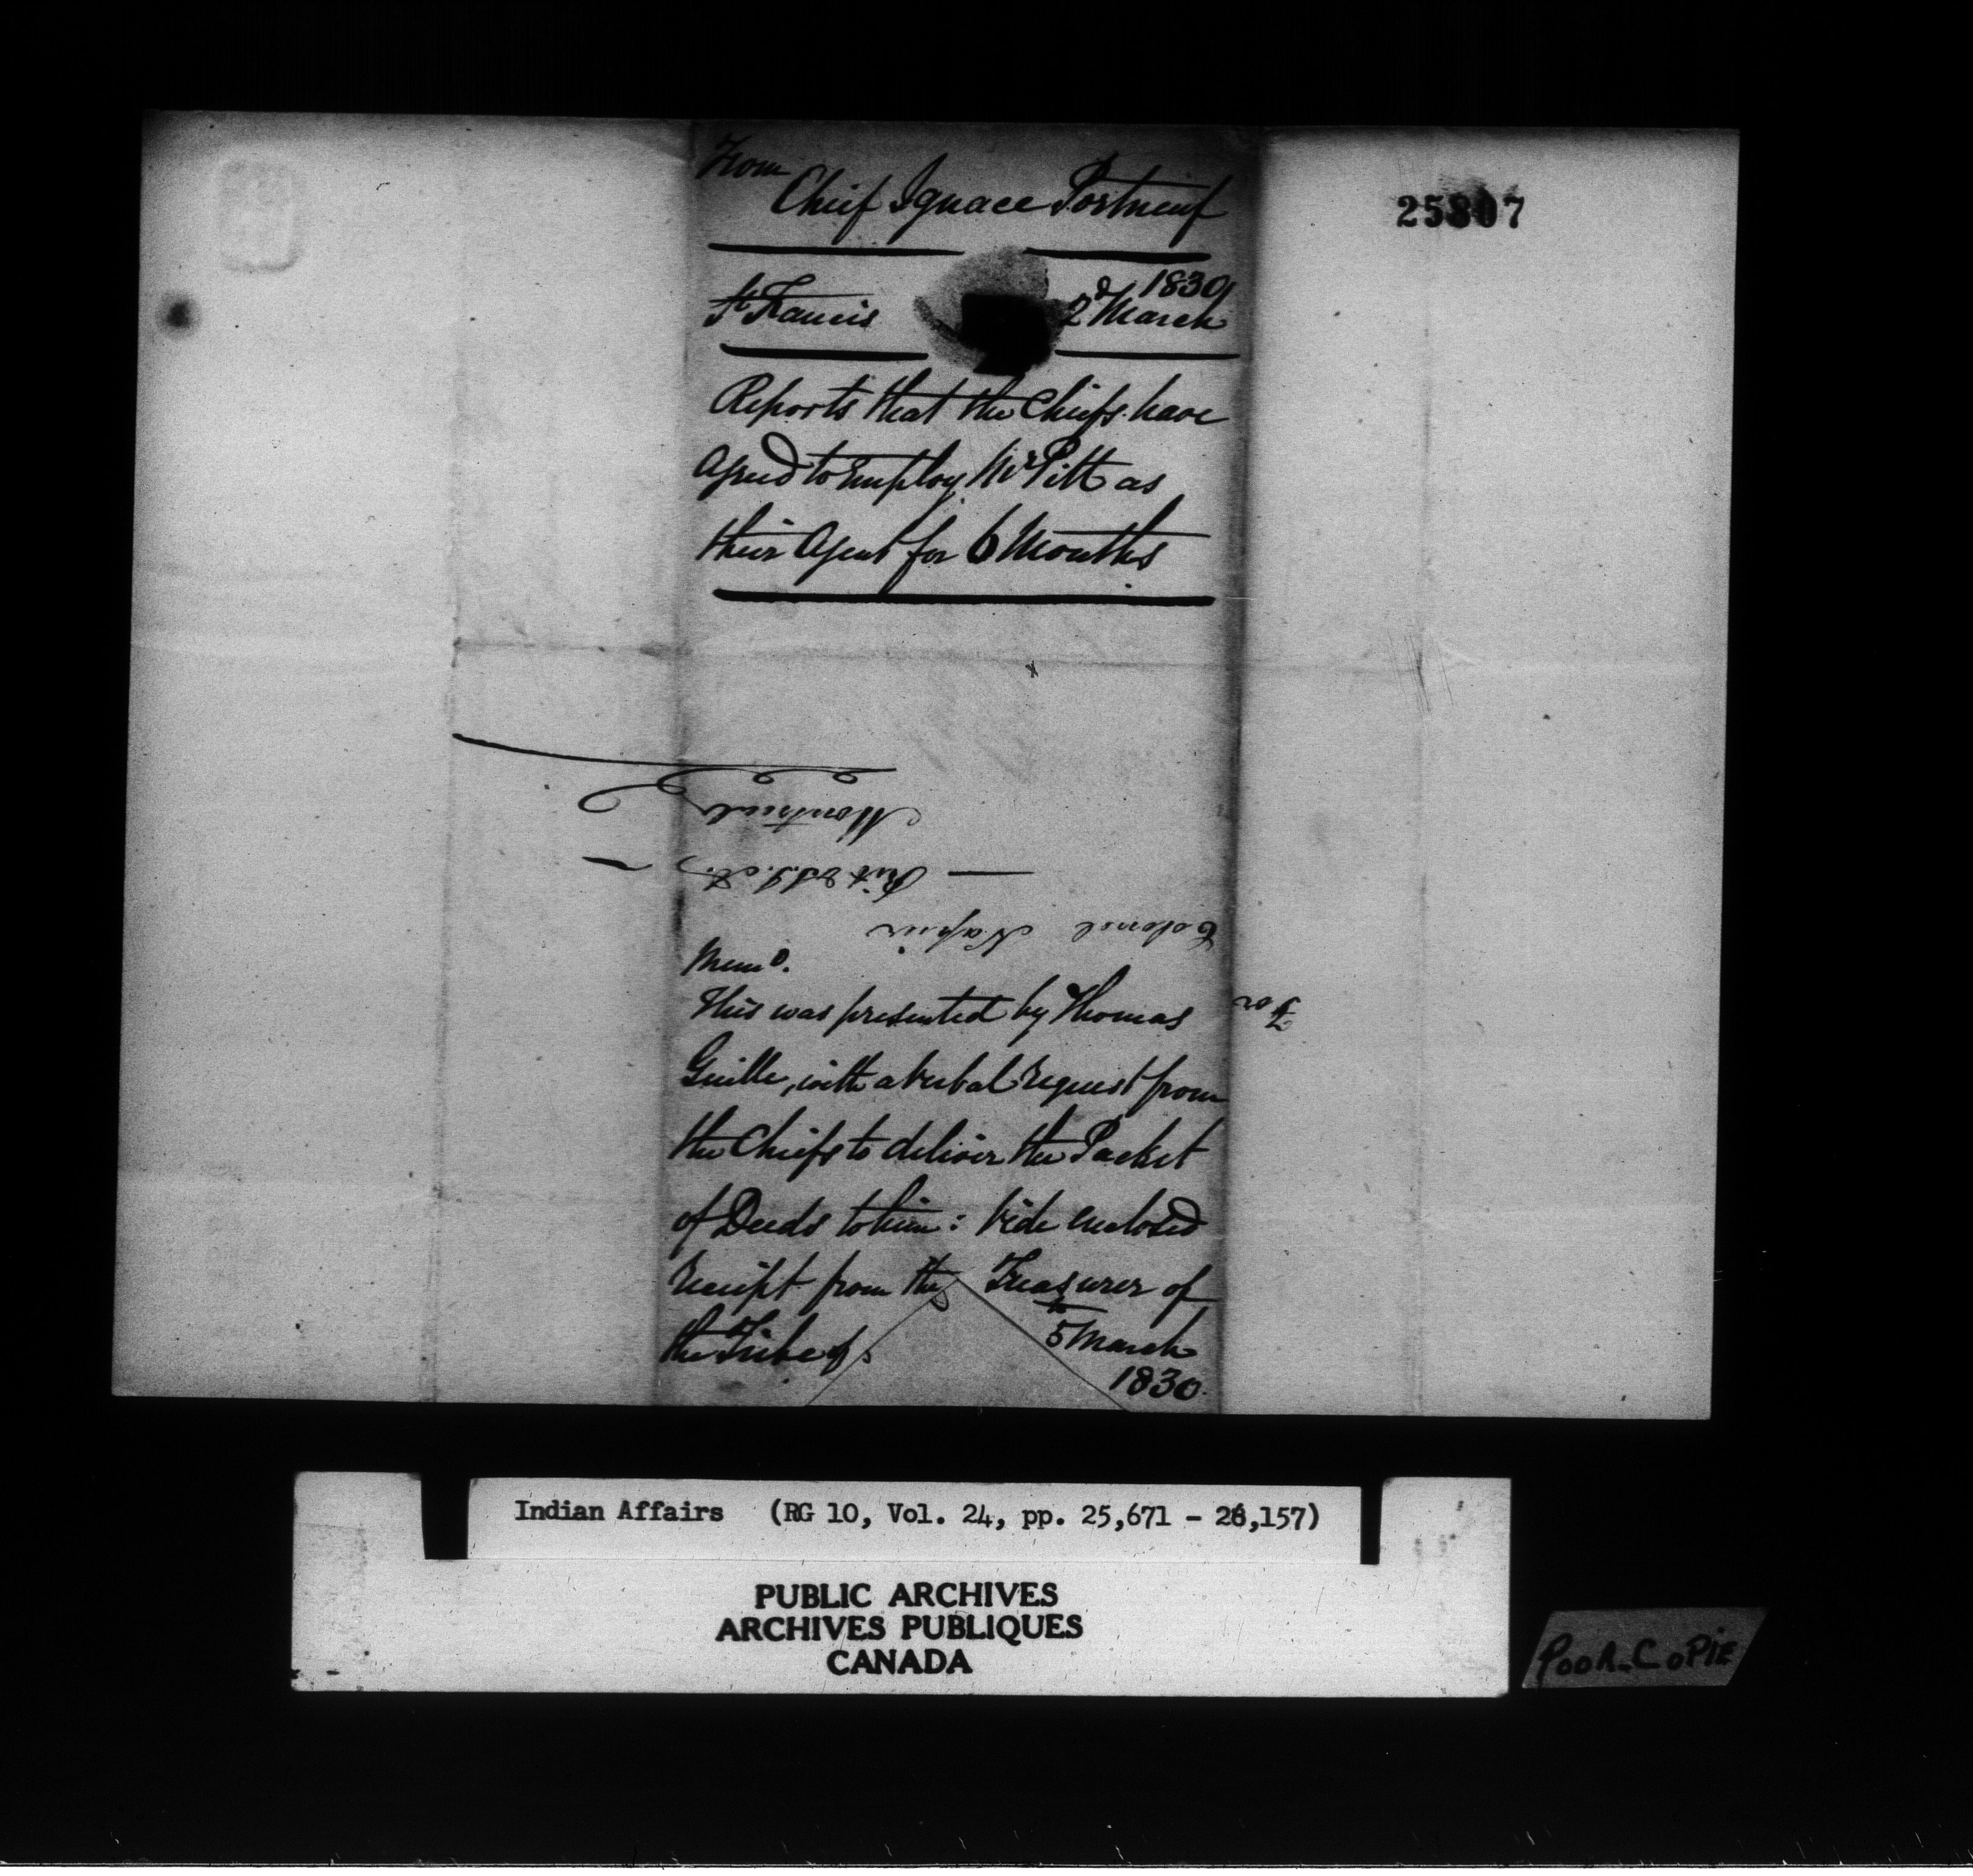 25807
From
Chief Ignace Portneuf
St Francis 2d March 1830
Reports that the Chiefs have
agreed to employ Mr Pitt as
their Agent for 6 Months
For
Colonel Napier
Montreal
Memo.
This was presented by Thomas
Guille, with a verbal request from
the Chiefs to deliver the Packet
of Deeds to him: vide enclosed
receipt from the Treasurer of
the Tribe
5th March
1830.
Indian Affairs (RG 10, Vol. 24, pp. 25,671 - 26,157)
PUBLIC ARCHIVES
ARCHIVES PUBLIQUES
CANADA
POOR-COPIE